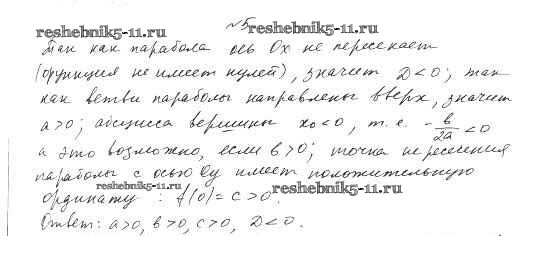 №5
reshebnik5-11.ru reshebnik5-11.ru
Так как парабола ось Ox не пересекает
(функция не имеет нулей), значит D<0; так
как ветви параболы направлены вверх, значит
a>0; абсцисса вершины x₀<0, т.е. -b/2a<0
а это возможно, если b>0; точка пересечения
параболы с осью Oy имеет положительную
reshebnik5-11.ru reshebnik5-11.ru
ординату: f(0)=c>0.
Ответ: a>0, b>0, c>0, D<0.